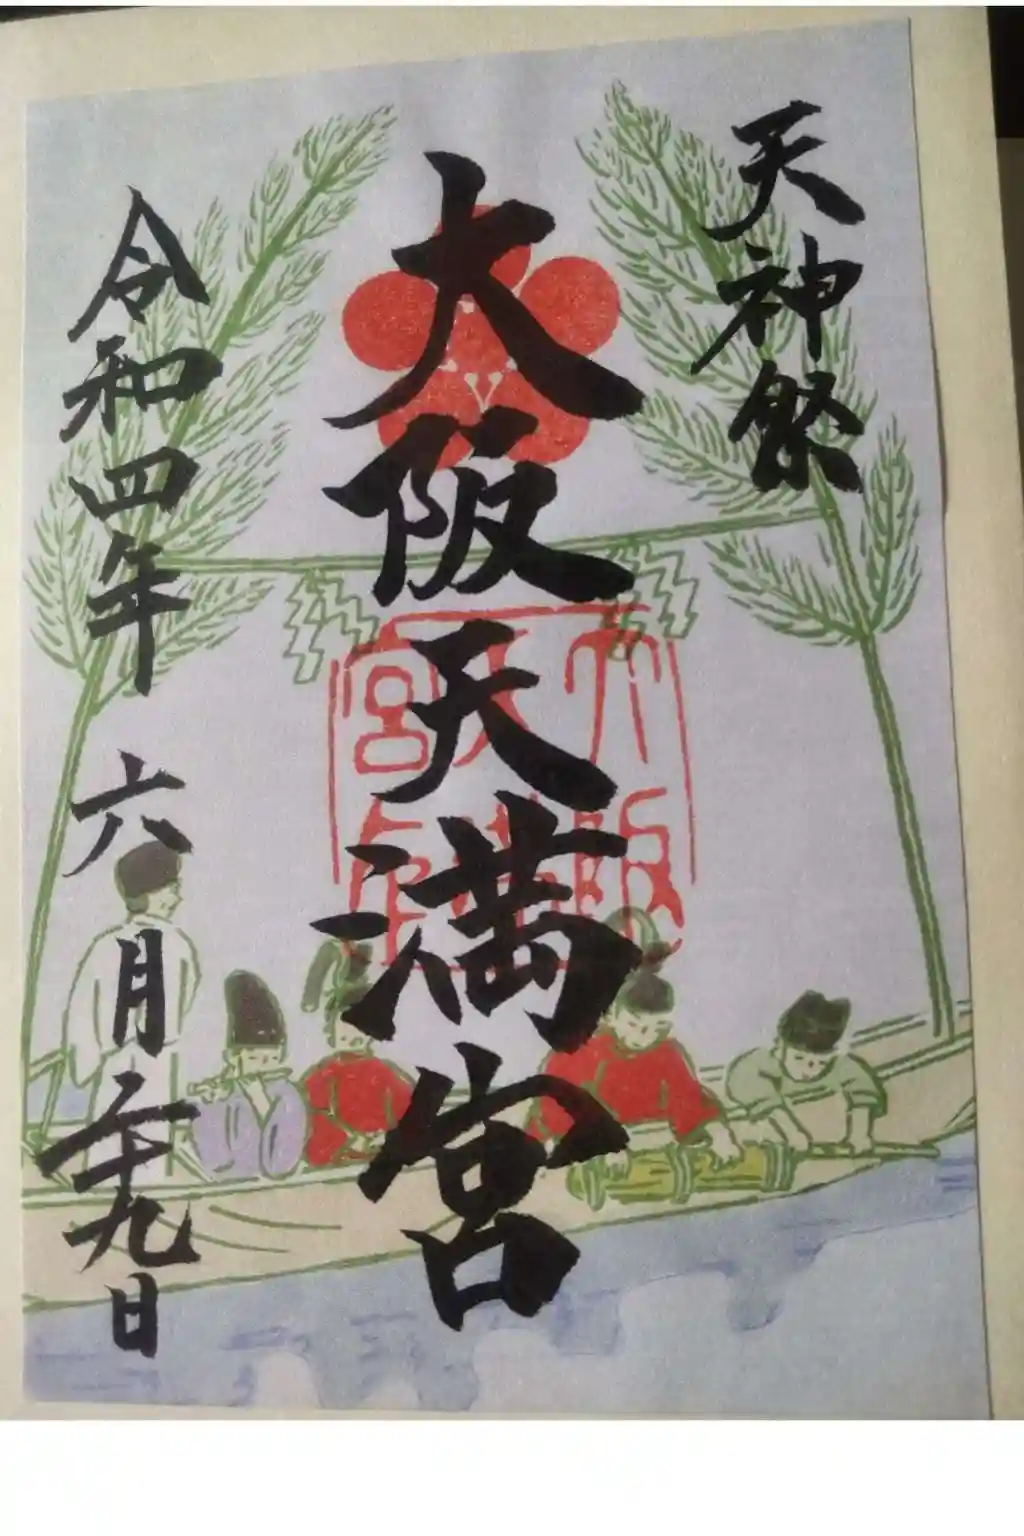 天神祭
大阪天満宮
大阪天満宮
令和四年 六月二十九日